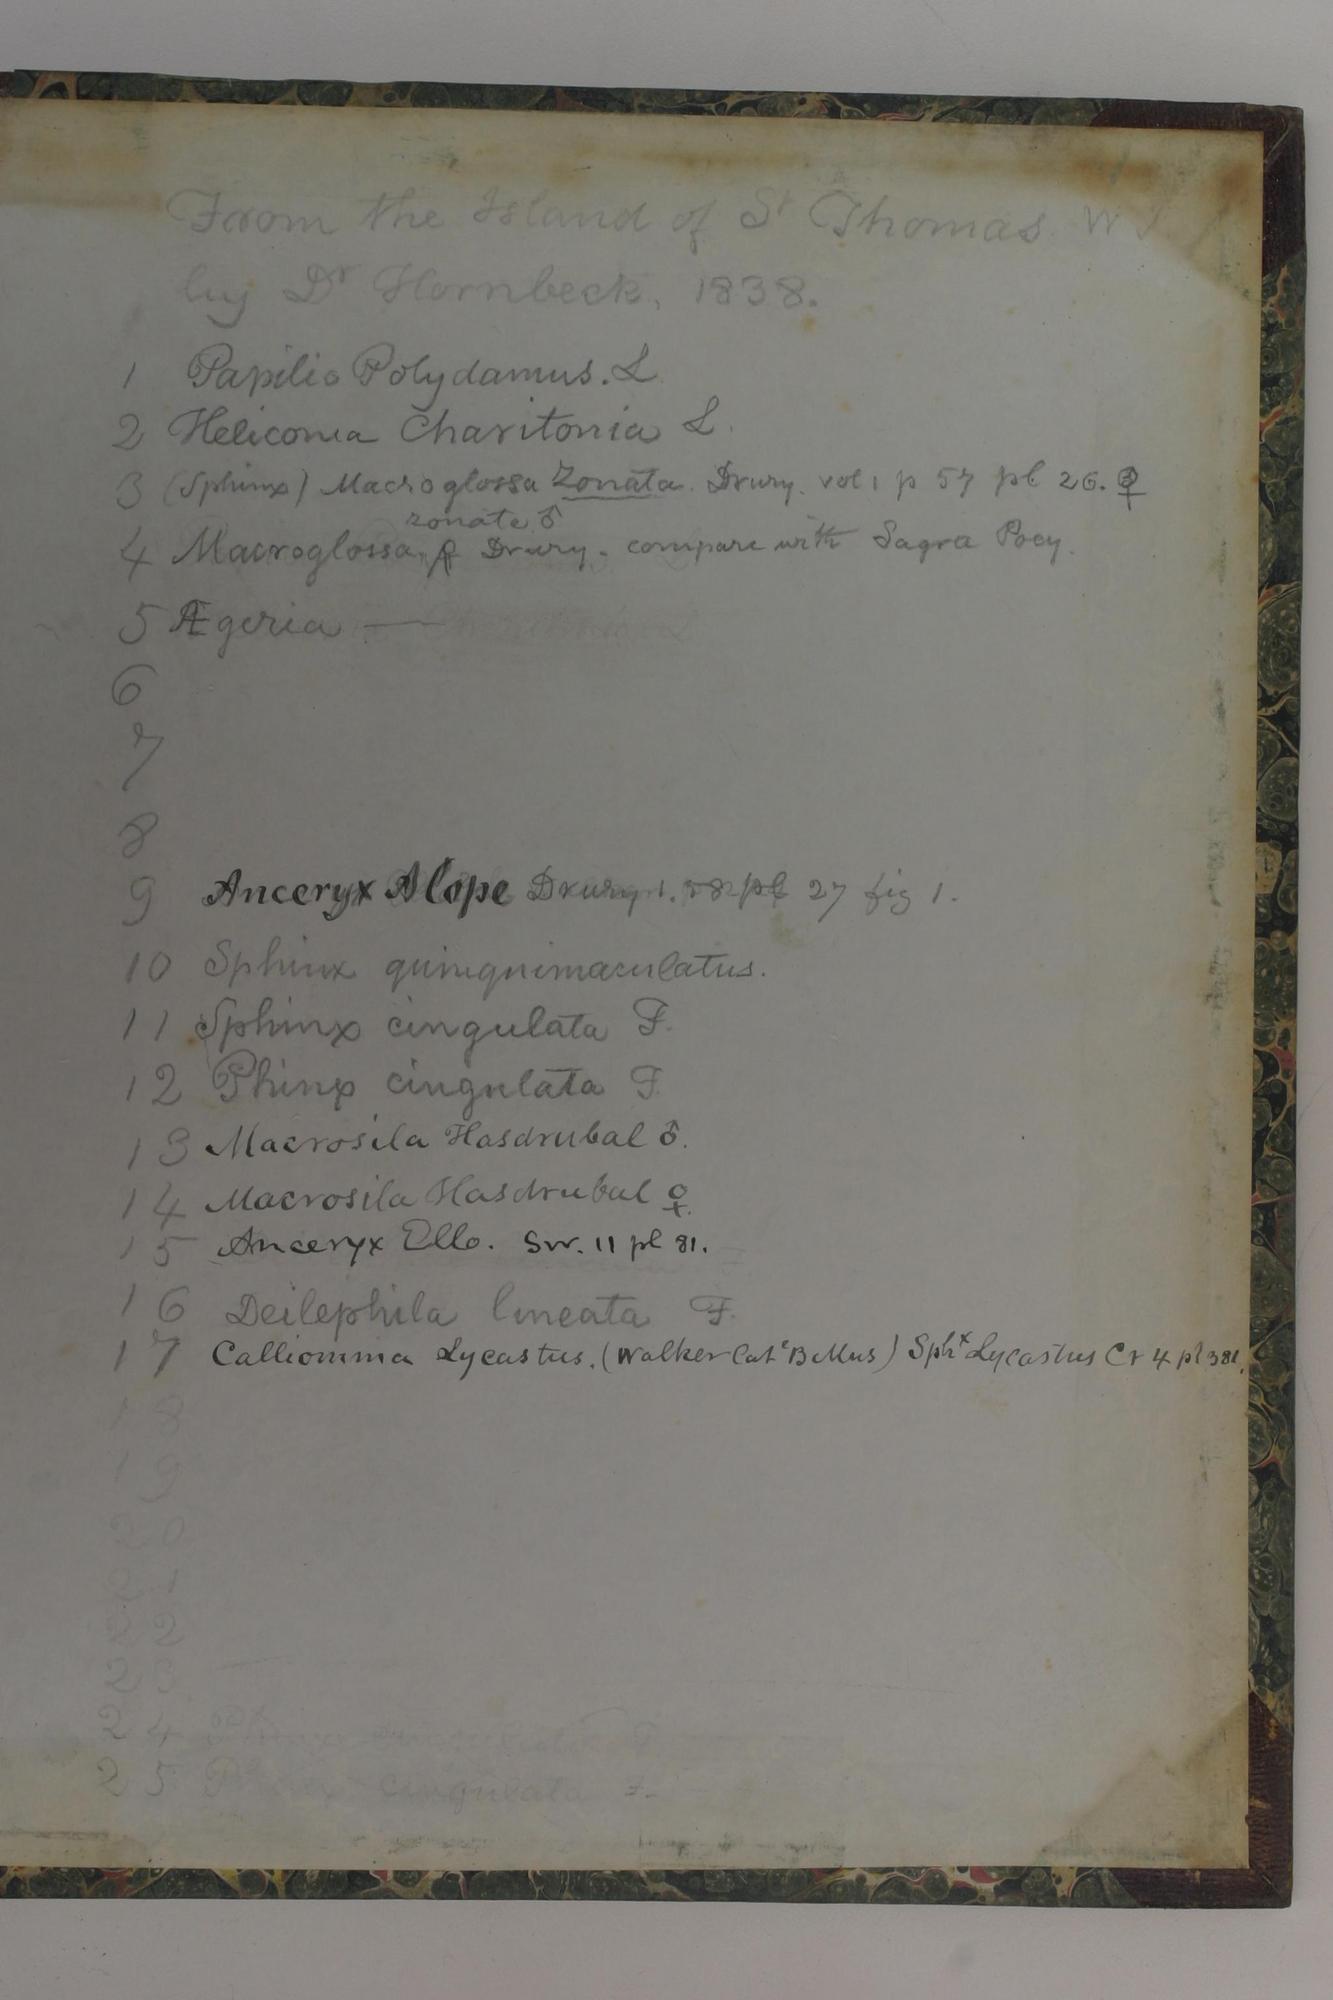 From the Island of St Thomas. W I.
by Dr Hornbeck, 1838.
1 Papilio Polydamus. L
2 Heliconia Charitonia L.
3 (Sphinx) Macroglossa Zonata. Drury. vol 1 p 57 pl 26. ♀
zonata ♂
4 Macroglossa Drury. compare with Sagra Poey.
5 Ægeria —
6
7
8
9 Anceryx Alope Drury 1. 58 pl 27 fig 1.
10 Sphinx quinquimaculatus.
11 Sphinx cingulata F.
12 Phinx cingulata F.
13 Macrosila Hasdrubal ♂.
14 Macrosila Hasdrubal ♀.
15 Anceryx Ello. Sw. 11 pl 81.
16 Deilephila lineata F.
17 Calliomma Lycastus. (Walker Cate B Mus) Sphx Lycastus Cr 4 pl 381.
18
19
20
21
22
23
24
25 cingulata F.